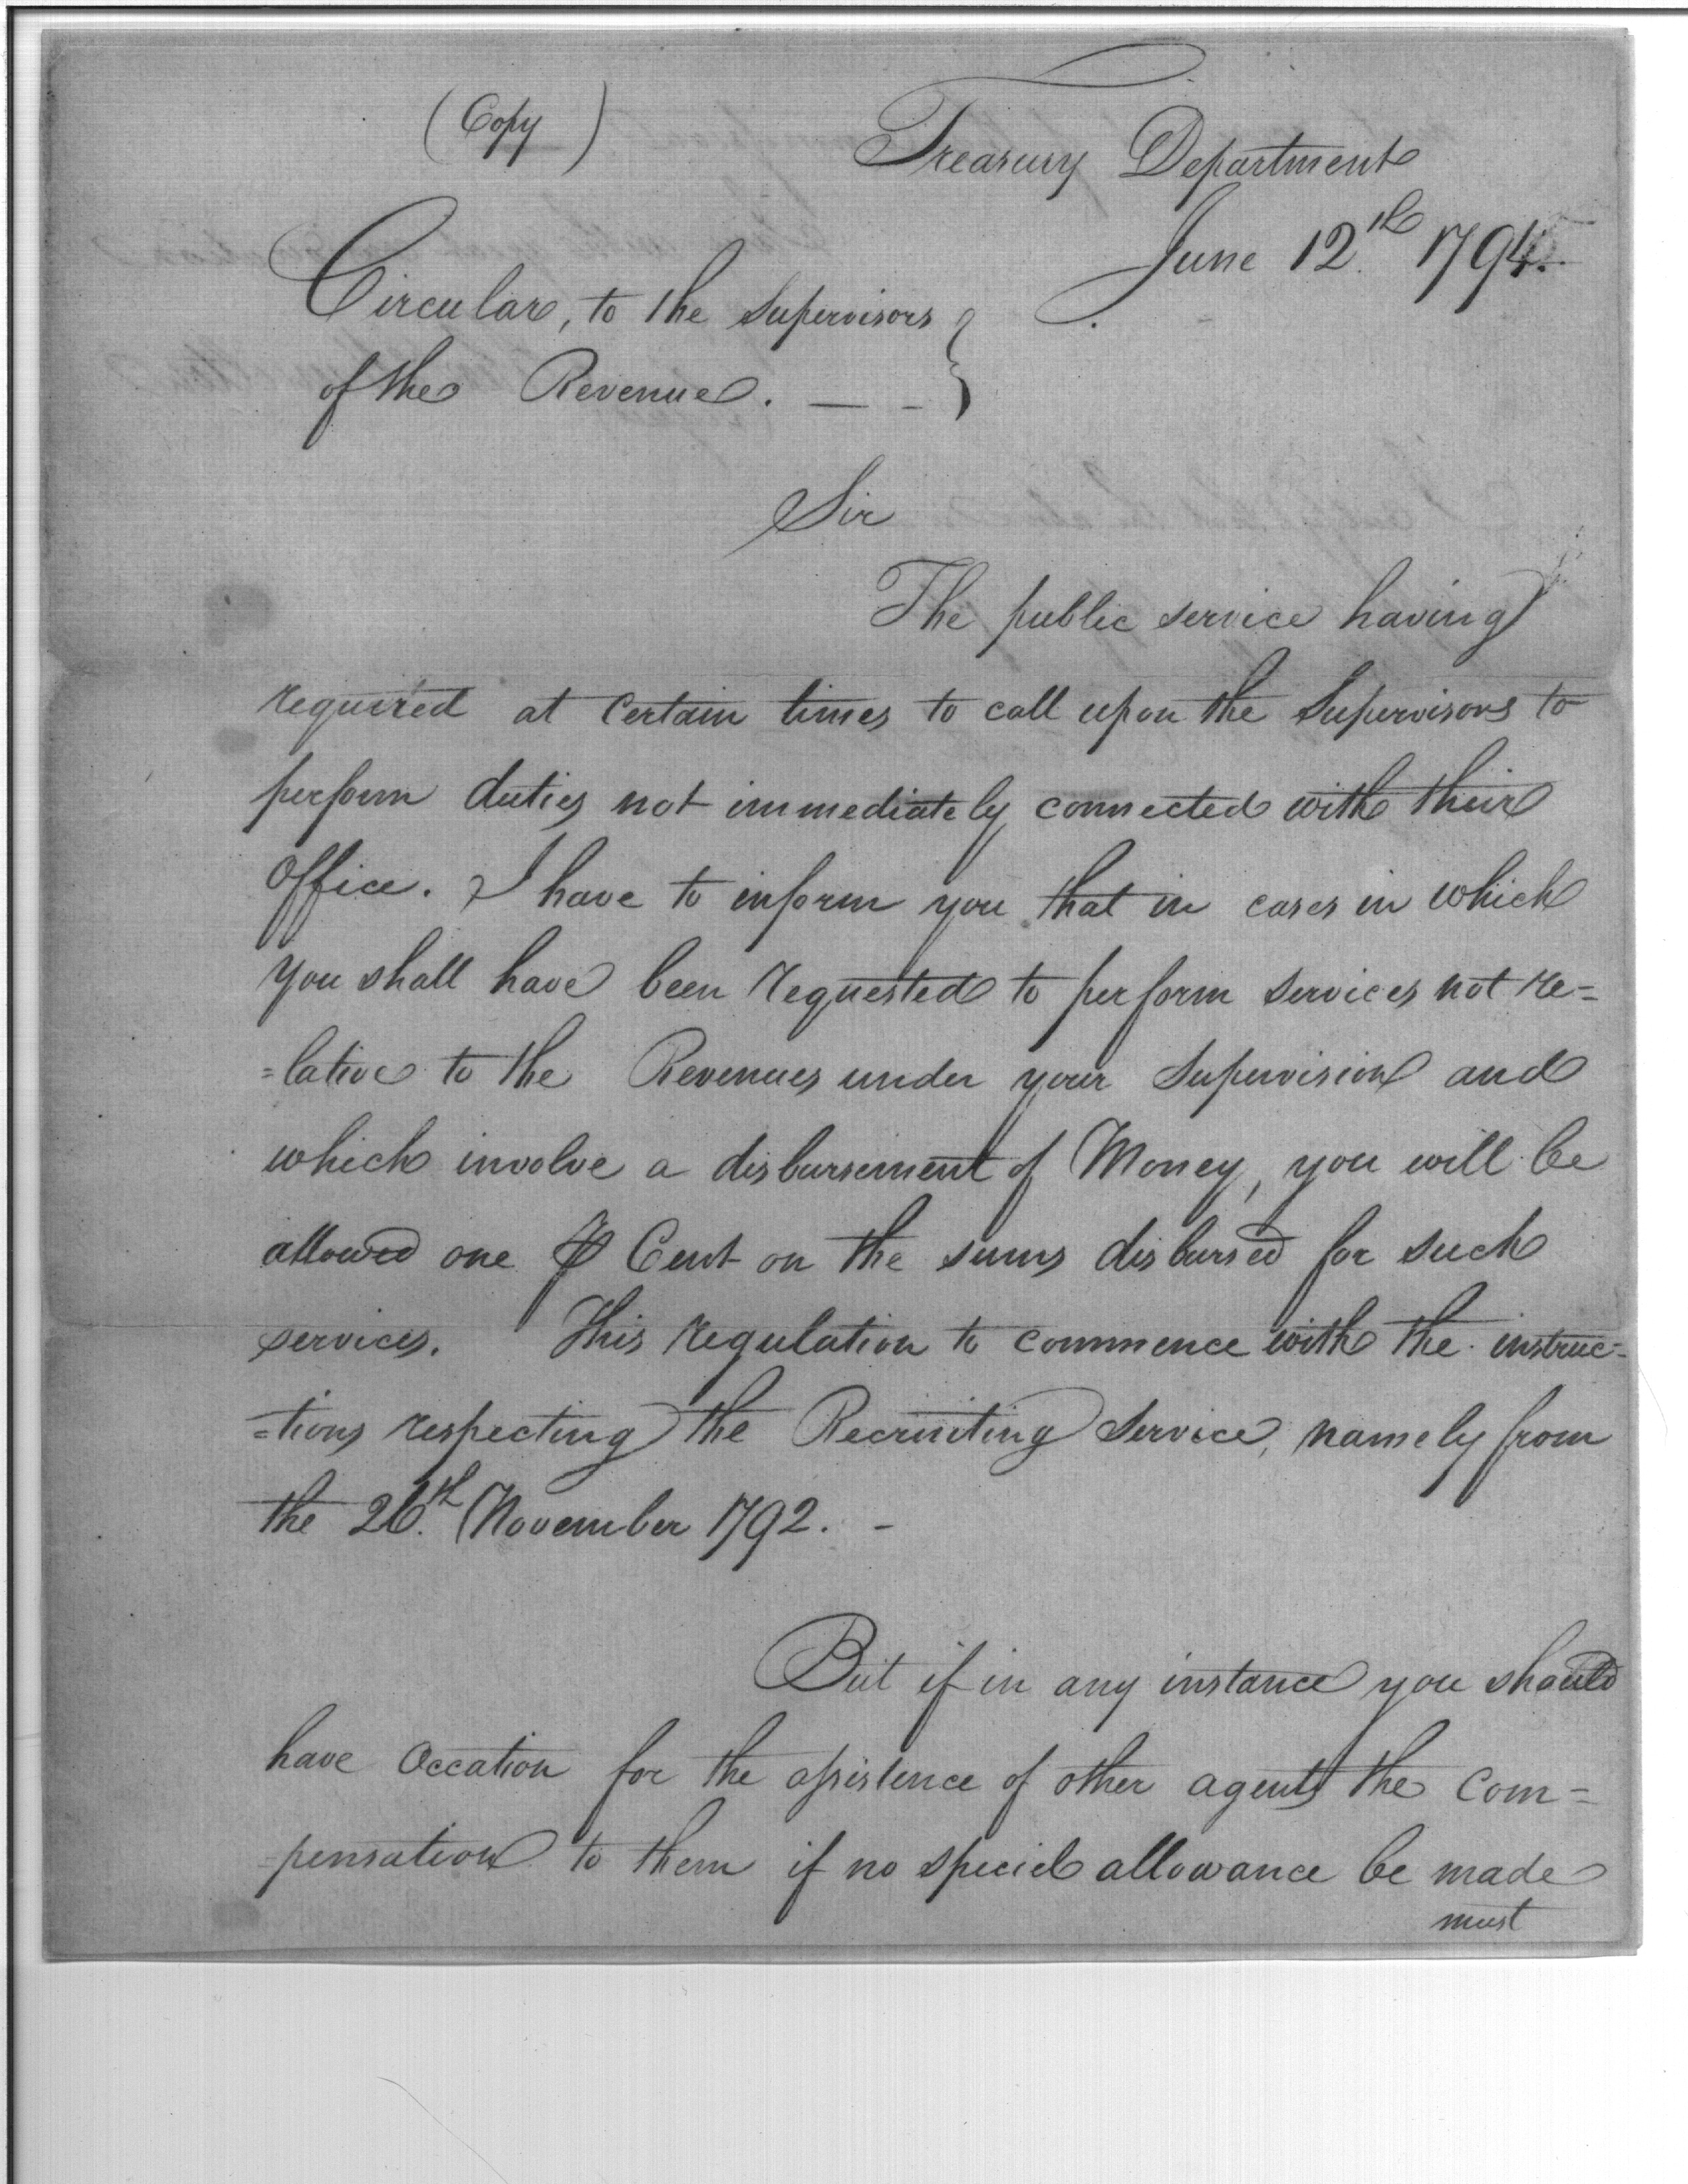 (Copy)
Treasury Department
June 12th 1794.
Circular, to the Supervisors
of the Revenue. — -
Sir
The public service having
required at Certain times to call upon the Supervisors to
perform duties not immediately connected with their
Office. I have to inform you that in cases in which
you shall have been requested to perform services not re=
=lative to the Revenues under your Supervision and
which involve a disbursement of Money, you will be
allowed one ⅌ Cent on the sums disbursed for such
services. This regulation to commence with the instruc=
=tions respecting the Recruiting Service, namely from
the 26th November 1792. -
But if in any instance you should
have Occation for the assistence of other agents the Com=
=pensation to them if no speciel allowance be made
must